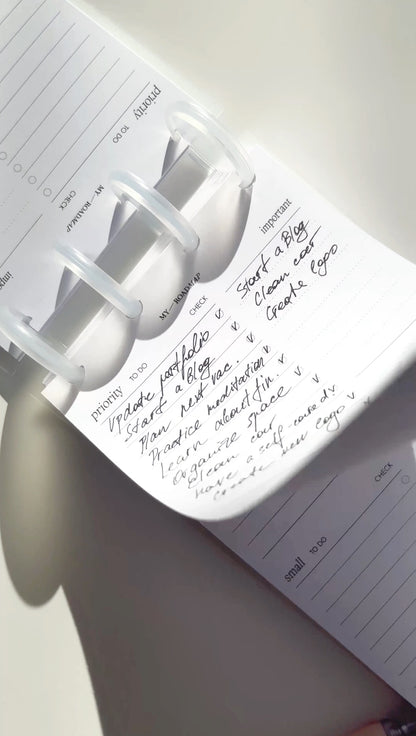 priority
TO DO
MY—ROADMAP
CHECK
MY—ROADMAP
priority
TO DO
CHECK
Update portfolio v
Start a Blog v
Plan next vac. v
Practice meditation v
Learn about fin. v
Organize space v
Clean coat v
have a self-care d v
create new logo v
important
Start a Blog
Clean coat
Create logo
small
TO DO
CHECK